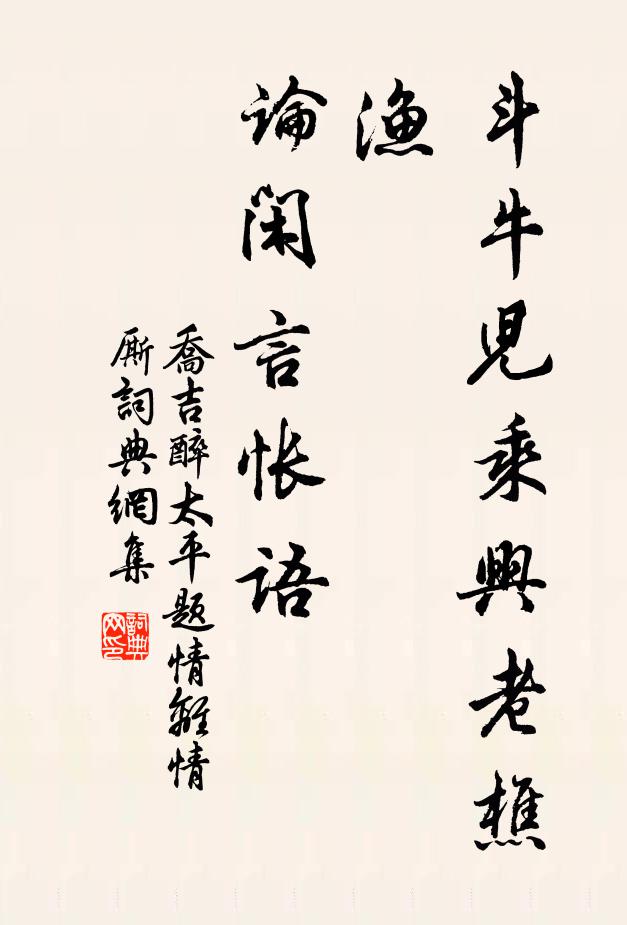 斗牛児乘興老樵
漁
論閑言怅語
喬吉醉太平题情離情
厮詞典網集
詞典
网印